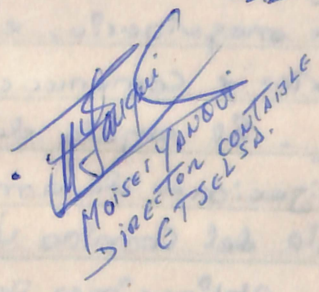 MOISES YANQUI
DIRECTOR CONTABLE
ETSELSA.